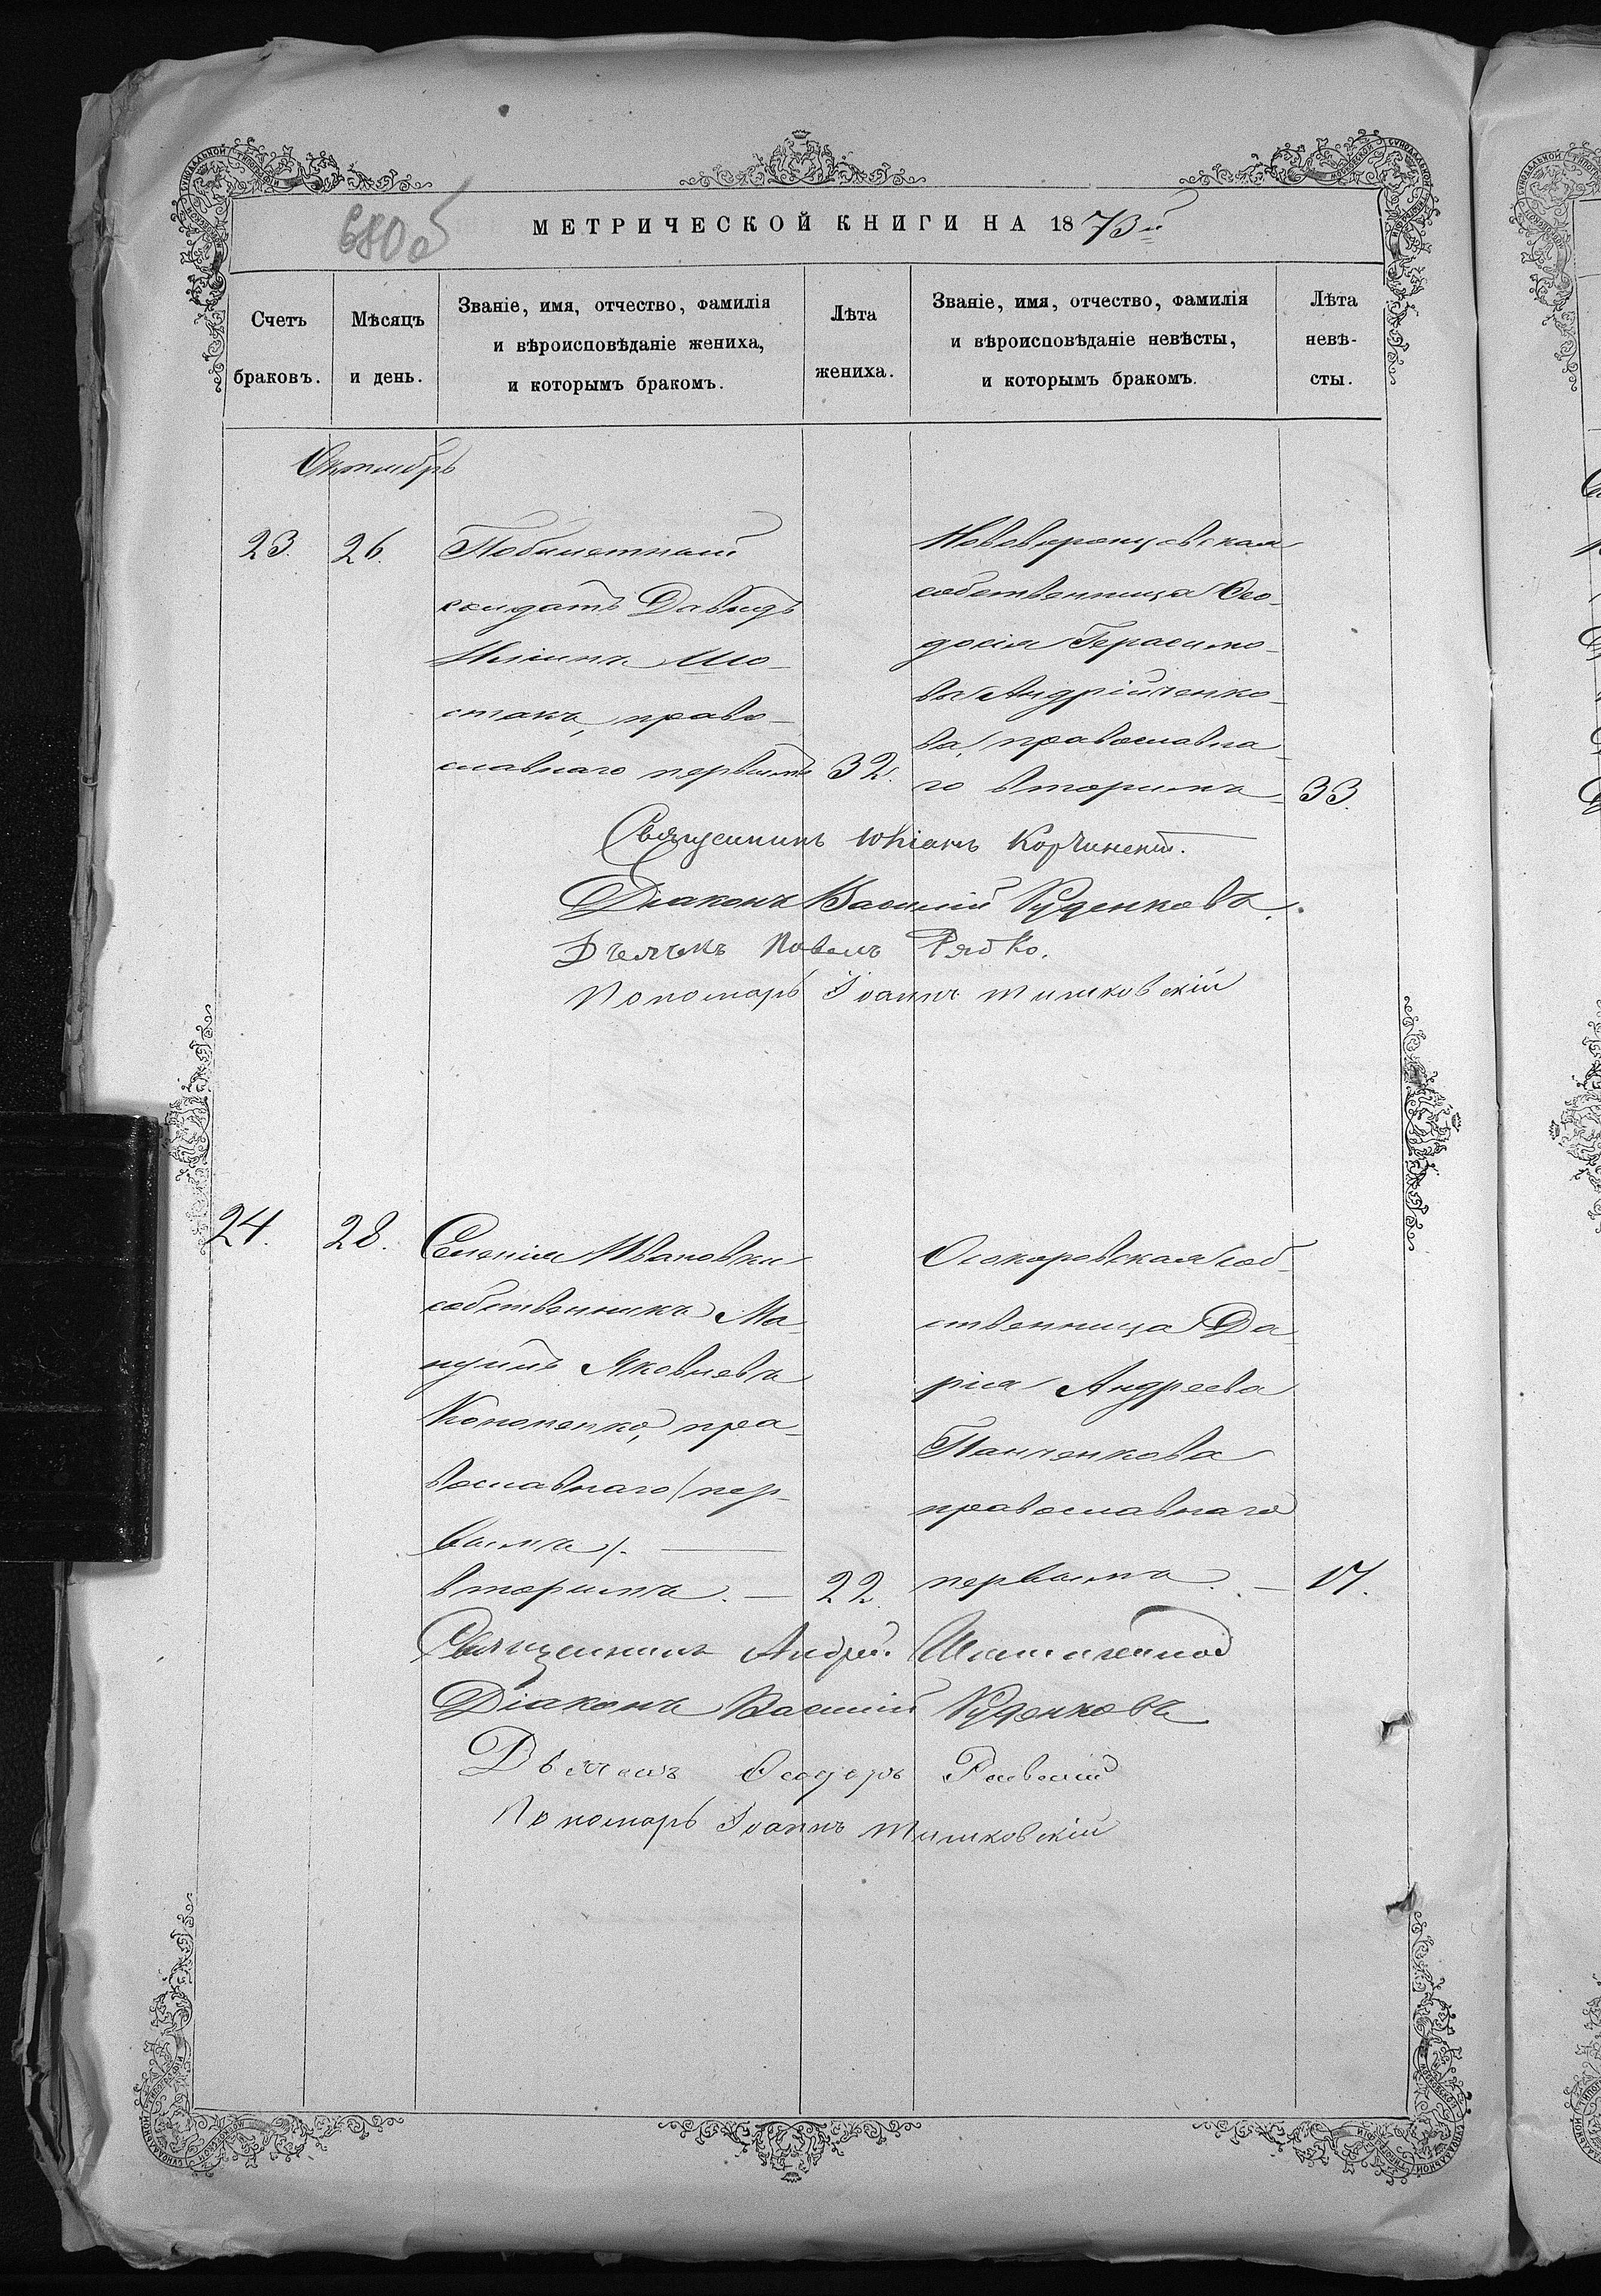 680об
МЕТРИЧЕСКОЙ КНИГИ НА 1873й
Счетъ браковъ.
Мѣсяцъ и день.
Званіе, имя, отчество, фамилія
и вѣроисповѣданіе жениха,
и которымъ бракомъ.
Лѣта жениха.
Званіе, имя, отчество, фамилія
и вѣроисповѣданіе невѣсты,
и которымъ бракомъ.
Лѣта невѣ-
сты.
Октябрь
23.
26.
Побилетный
солдатъ Давидъ
Шо-
стакъ, право-
славнаго первымъ
32.
Нововоронцовская
собственница Ѳео-
досія Герасимо-
ва Андрійченко-
ва, православна-
го вторымъ
33.
Священникъ Юліанъ Корчинскій.
Діаконъ Василій Руденковъ.
Дьячекъ Павелъ Рябко.
Пономарь Іоаннъ Тишковскій
24.
28.
Селенія Ивановки
собственникъ Ма-
нуилъ Яковлевъ
Кононенко, пра-
вославнаго /пер-
вымъ/.
вторымъ.
22.
Осокоровская соб-
ственница Да-
рія Андреева
Панченкова
православнаго
первымъ.
17.
Священникъ Андрей
Діаконъ Василій Руденковъ
Дьячекъ Ѳеодоръ
Пономарь Іоаннъ Тишковскій